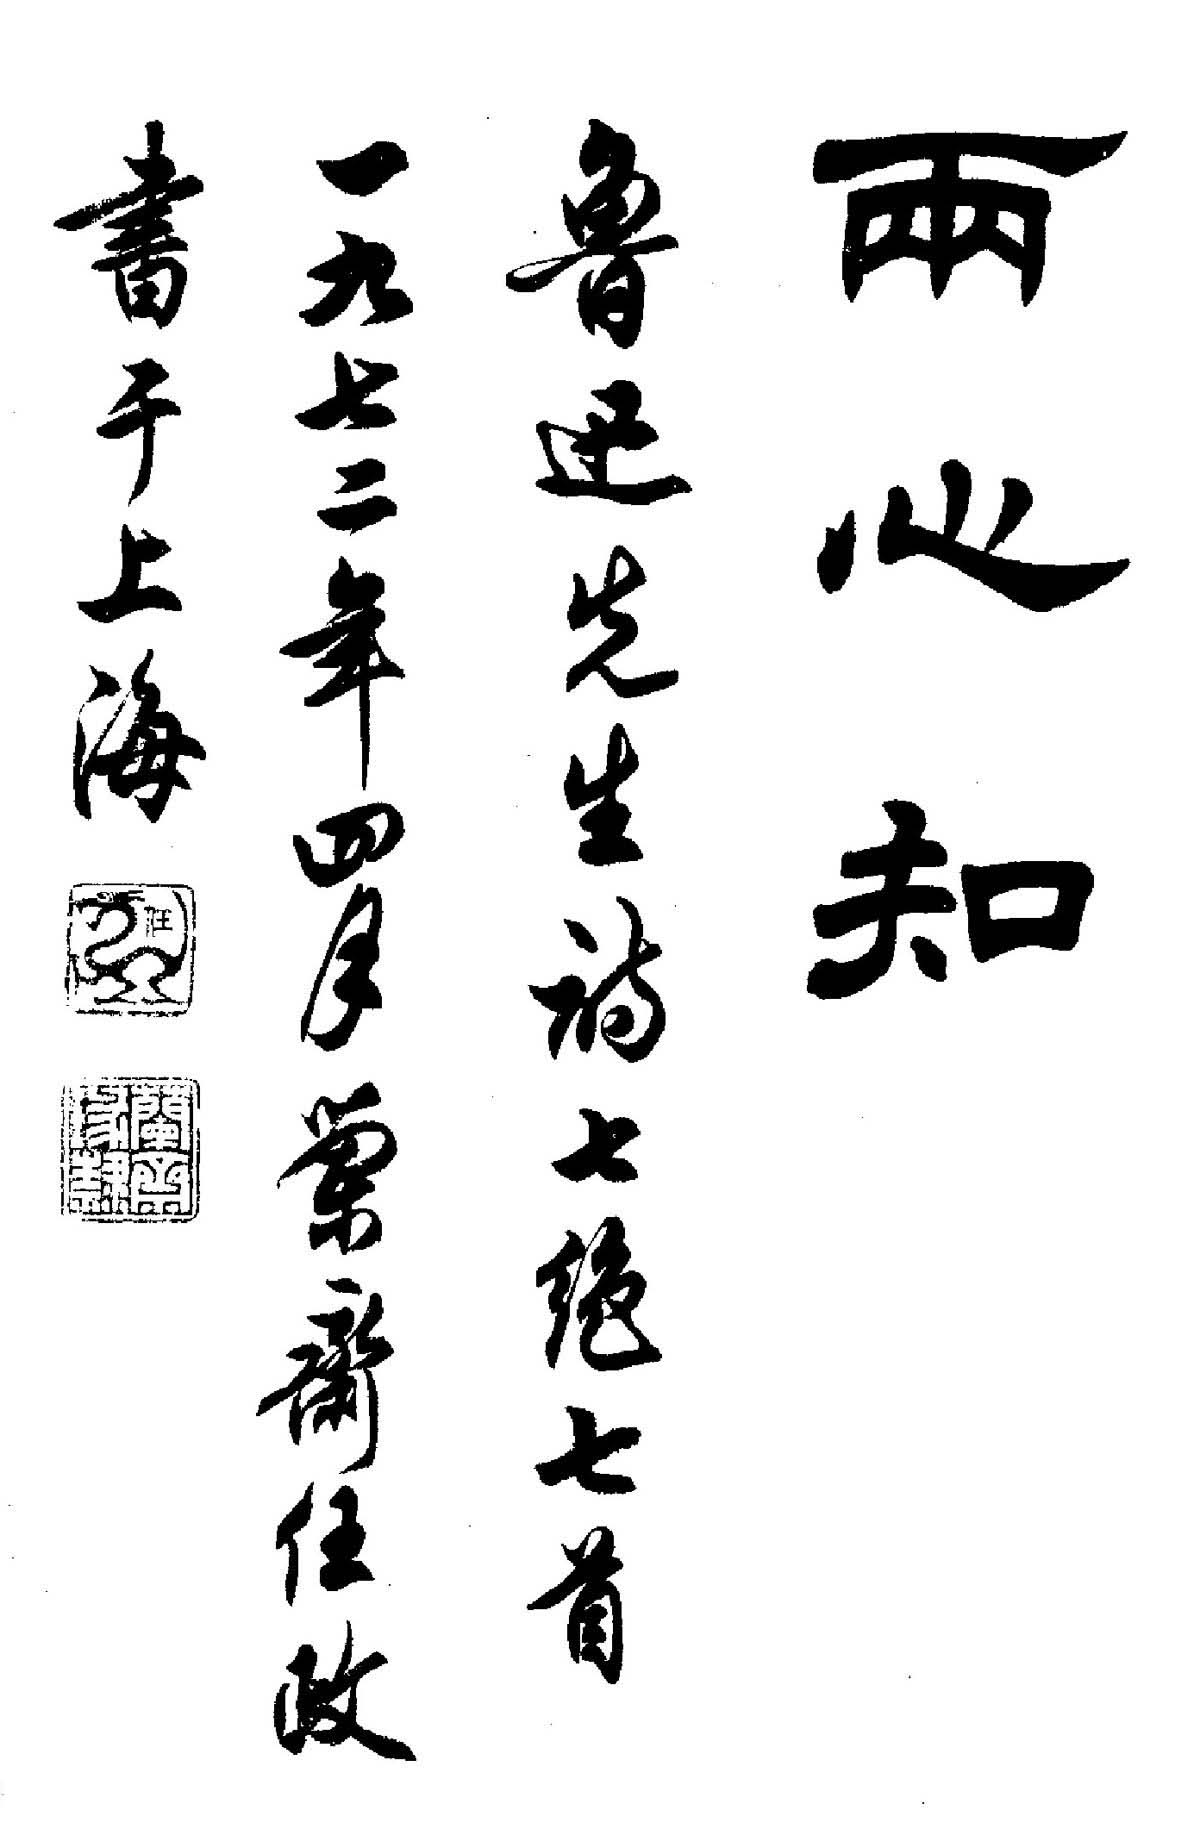 兩心知
魯迅先生詩七絕七首
一九七二年四月蘭齋任政
書于上海
任